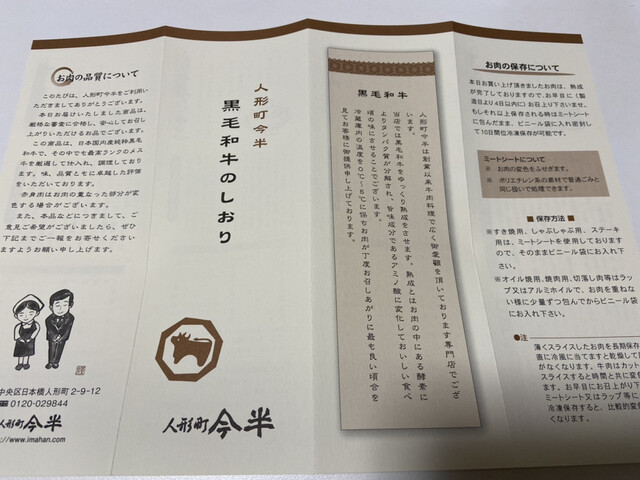 お肉の品質について
このたびは、人形町今半をご利用い
ただきましてありがとうございます。
本日お届けいたしました商品は、
厳格な審査に合格し、安心してお召し
上がりいただけるお品でございます。
この商品は、日本国内産純粋黒毛
和牛で、その中でも最高ランクのメス
牛を厳選して仕入れ、調理しており
ます。味、品質ともに卓越した評価
をいただいております。
赤身肉はお肉の重なった部分が変
色する場合がございます。
また、本品などにつきまして、ご
意見ご希望がございましたら、ぜひ
下記までご一報をお寄せください
ますようお願い申し上げます。
中央区日本橋人形町 2-9-12
0120-029844
人形町今半
://www.imahan.com
人形町今半
黒毛和牛のしおり
人形町今半
黒毛和牛
人形町今半は創業以来牛肉料理で広く御愛顧を頂いております専門店でござ
います。
当店では黒毛和牛をゆっくり熟成をさせます。熟成とはお肉の中にある酵素に
よりタンパク質が分解され、旨味成分であるアミノ酸に変化しておいしい食べ
頃の味にさせることでございます。
冷蔵庫内の温度を0℃~5℃に保ちお肉が丁度お召しあがりに最も良い頃合を
見てお客様に御提供申し上げております。
お肉の保存について
本日お買い上げ頂きましたお肉は、熟成
が完了しておりますので、お早目に(製
造日より4日以内に)お召上り下さいませ。
もしそれ以上保存される時はミートシート
に包んだまま、ビニール袋に入れ密封し
て10日間位冷凍保存が可能です。
ミートシートについて
※ お肉の変色をふせぎます。
※ ポリエチレン系の素材で普通ごみと
同じ扱いで処理できます。
■ 保存方法 ■
※すき焼用、しゃぶしゃぶ用、ステーキ
用は、ミートシートを使用しております
ので、そのままビニール袋にお入れ下
さい。
※オイル焼用、焼肉用、切落し肉等はラッ
プ又はアルミホイルで、お肉を重ねな
い様に少量ずつ包んでからビニール袋
にお入れ下さい。
●注
薄くスライスしたお肉を長期保存
直に冷風に当てますと乾燥して
がなくなります。牛肉はカット
スライスすると時間と共に変色
ます。お早目にお召上り下
ミートシート又はラップ等に
冷凍保存すると、比較的変
くなります。